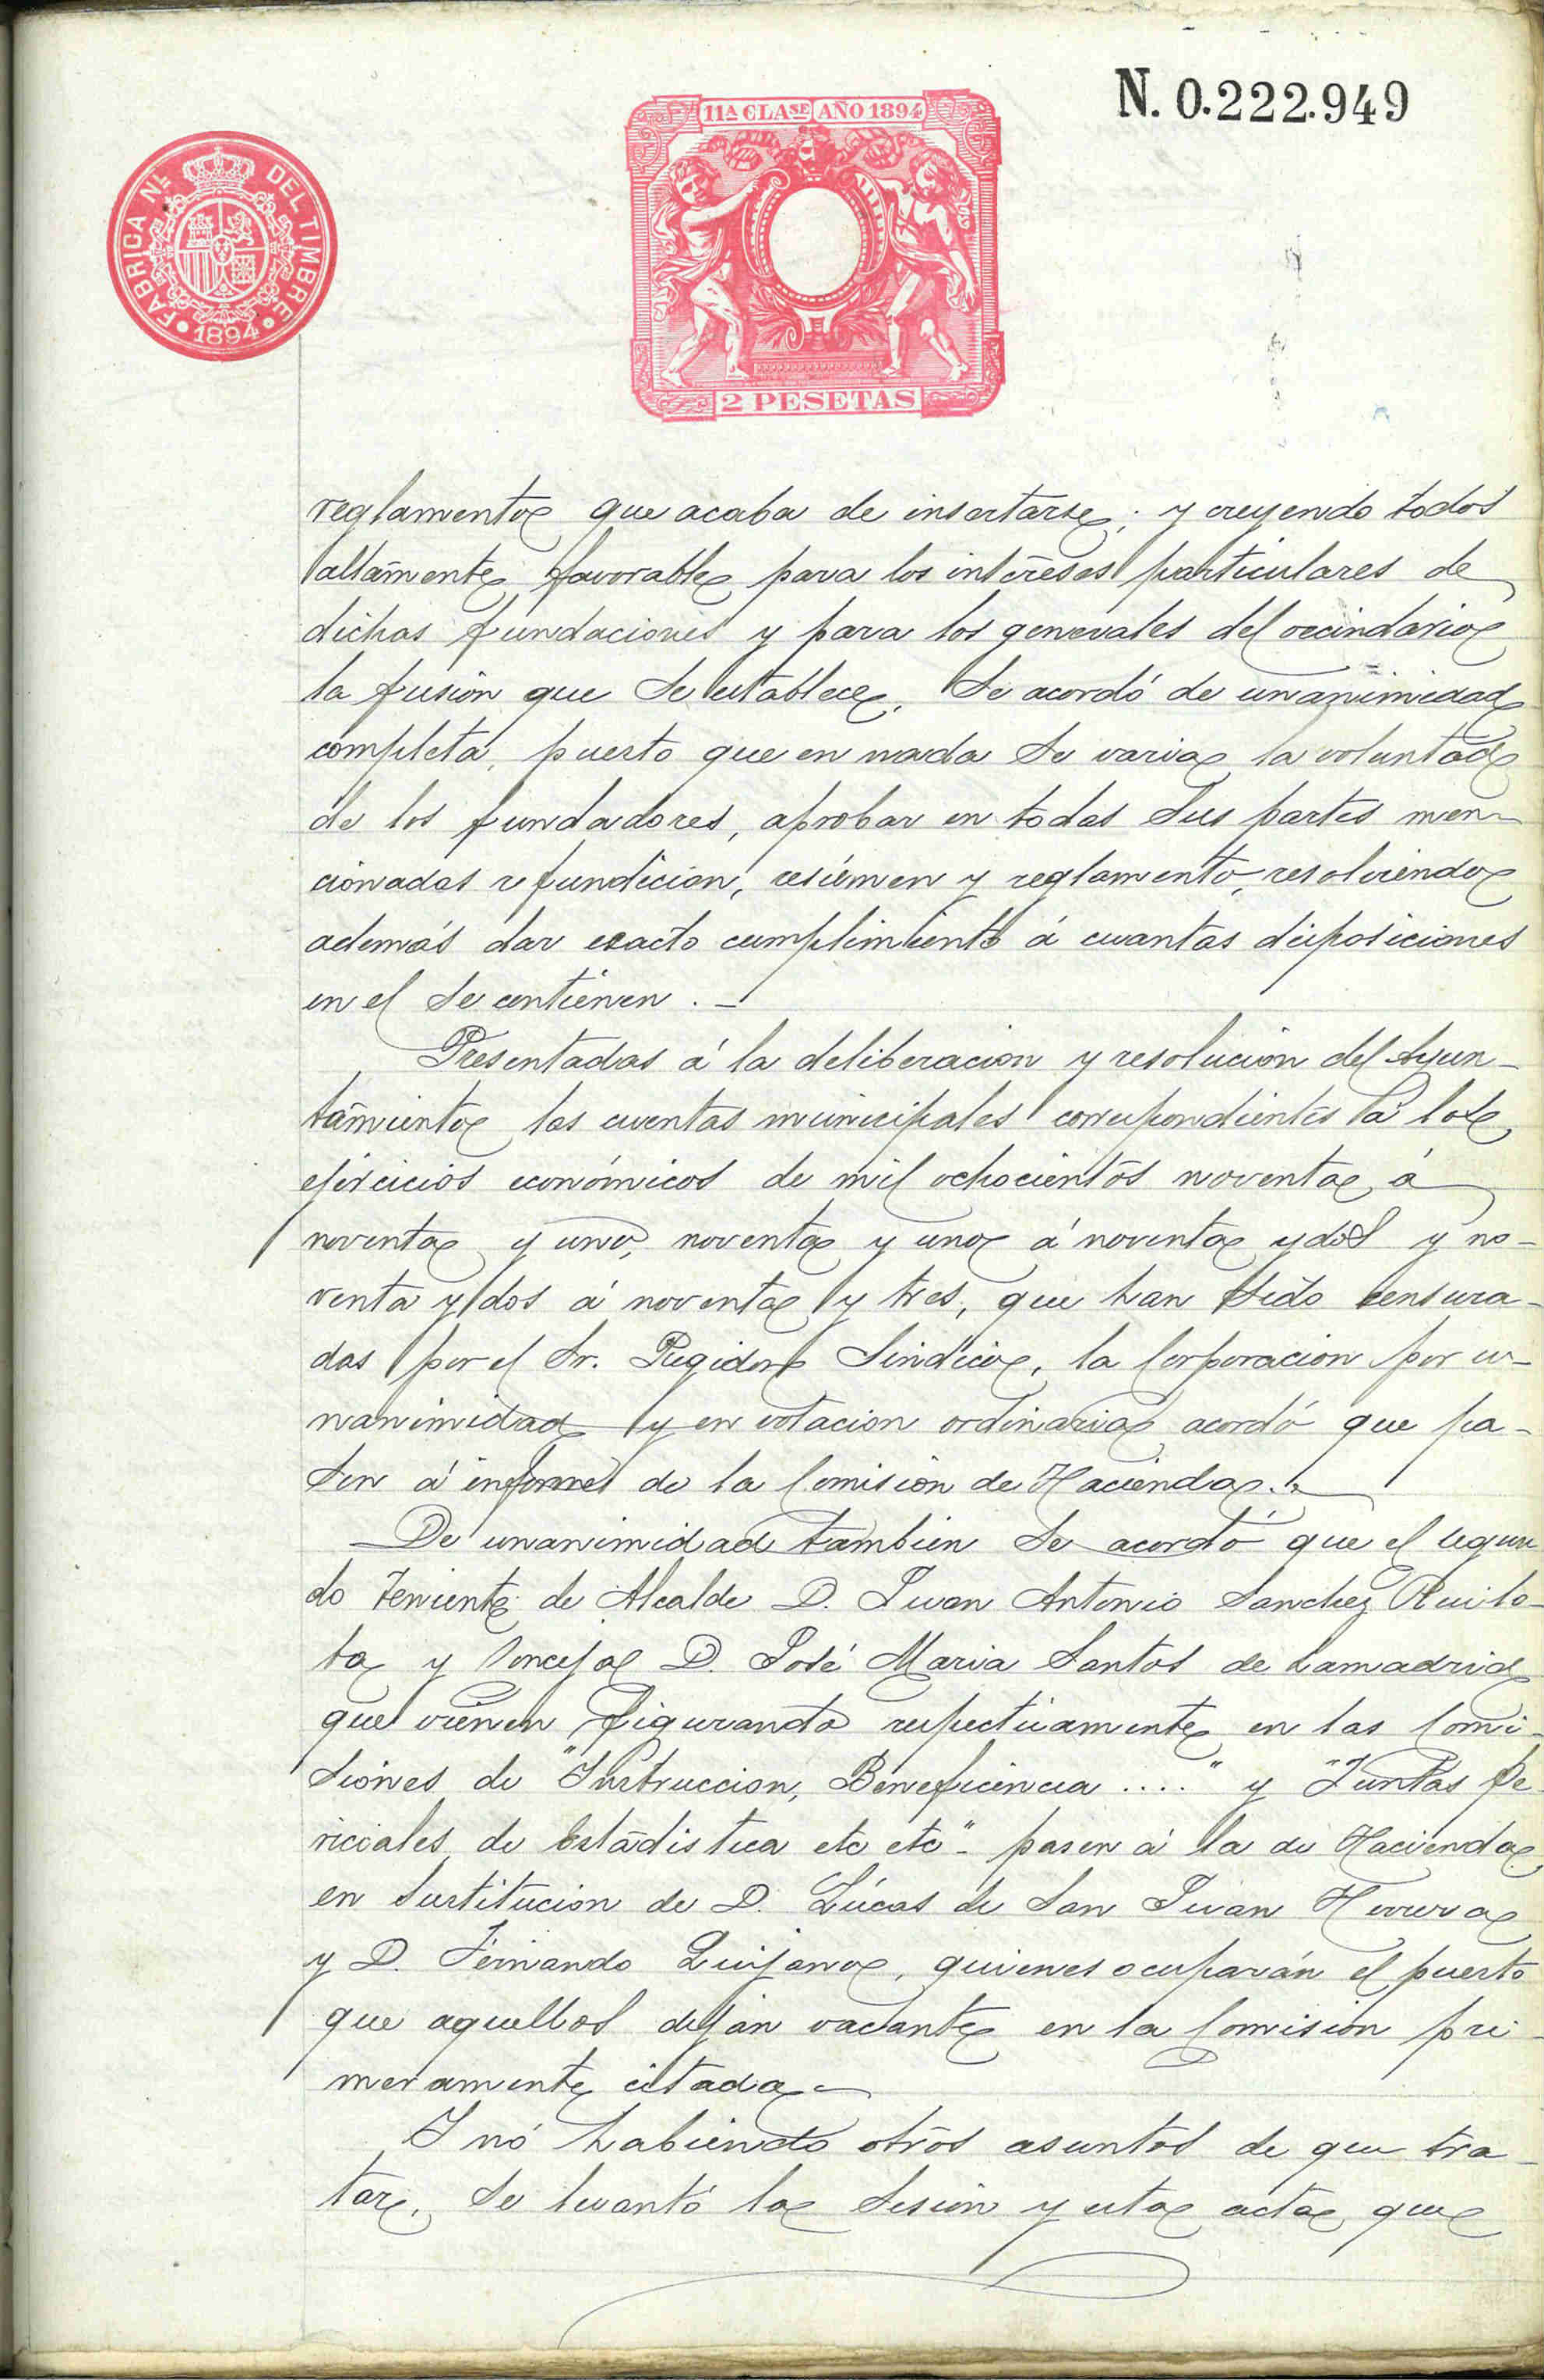 N. 0.222.949
11ª CLASE AÑO 1894
FABRICA Nᴸ DEL TIMBRE
1894
2 PESETAS
reglamento que acaba de insertarse; y creyendo todos
altamente favorable para los intereses particulares de
dichas fundaciones y para los generales del vecindario
la fusión que se establece, se acordó de unanimidad
completa, puesto que en nada se varia la voluntad
de los fundadores, aprobar en todas sus partes men-
cionadas refundicion, resúmen y reglamento, resolviendo
además dar exacto cumplimiento á cuantas disposiciones
en el se contienen. -
Presentadas á la deliberacion y resolucion del Ayun-
tamiento las cuentas municipales correspondientes á los
ejercicios económicos de mil ochocientos noventa á
noventa y uno, noventa y uno á noventa y dos y no-
venta y dos á noventa y tres, que han sido censura-
das por el Sr. Regidor Sindico, la Corporacion por u-
nanimidad y en votacion ordinaria acordó que pa-
sen á informe de la Comision de Hacienda. -
De unanimidad tambien se acordó que el segun
do Teniente de Alcalde D. Juan Antonio Sanchez Ruilo-
ba y Concejal D. José Maria Santos de Lamadrid
que vienen figurando respectivamente en las Comi-
siones de "Instruccion, Beneficencia ...." y "Juntas Pe-
riciales de Estadistica etc etc" - pasen á la de Hacienda
en sustitucion de D. Lúcas de San Juan Herrera
y D. Fernando Quijano, quienes ocuparán el puesto
que aquellos dejan vacante en la Comision pri-
meramente citada -
Y nó habiendo otros asuntos de que tra-
tar, se levantó la sesion y esta acta, que